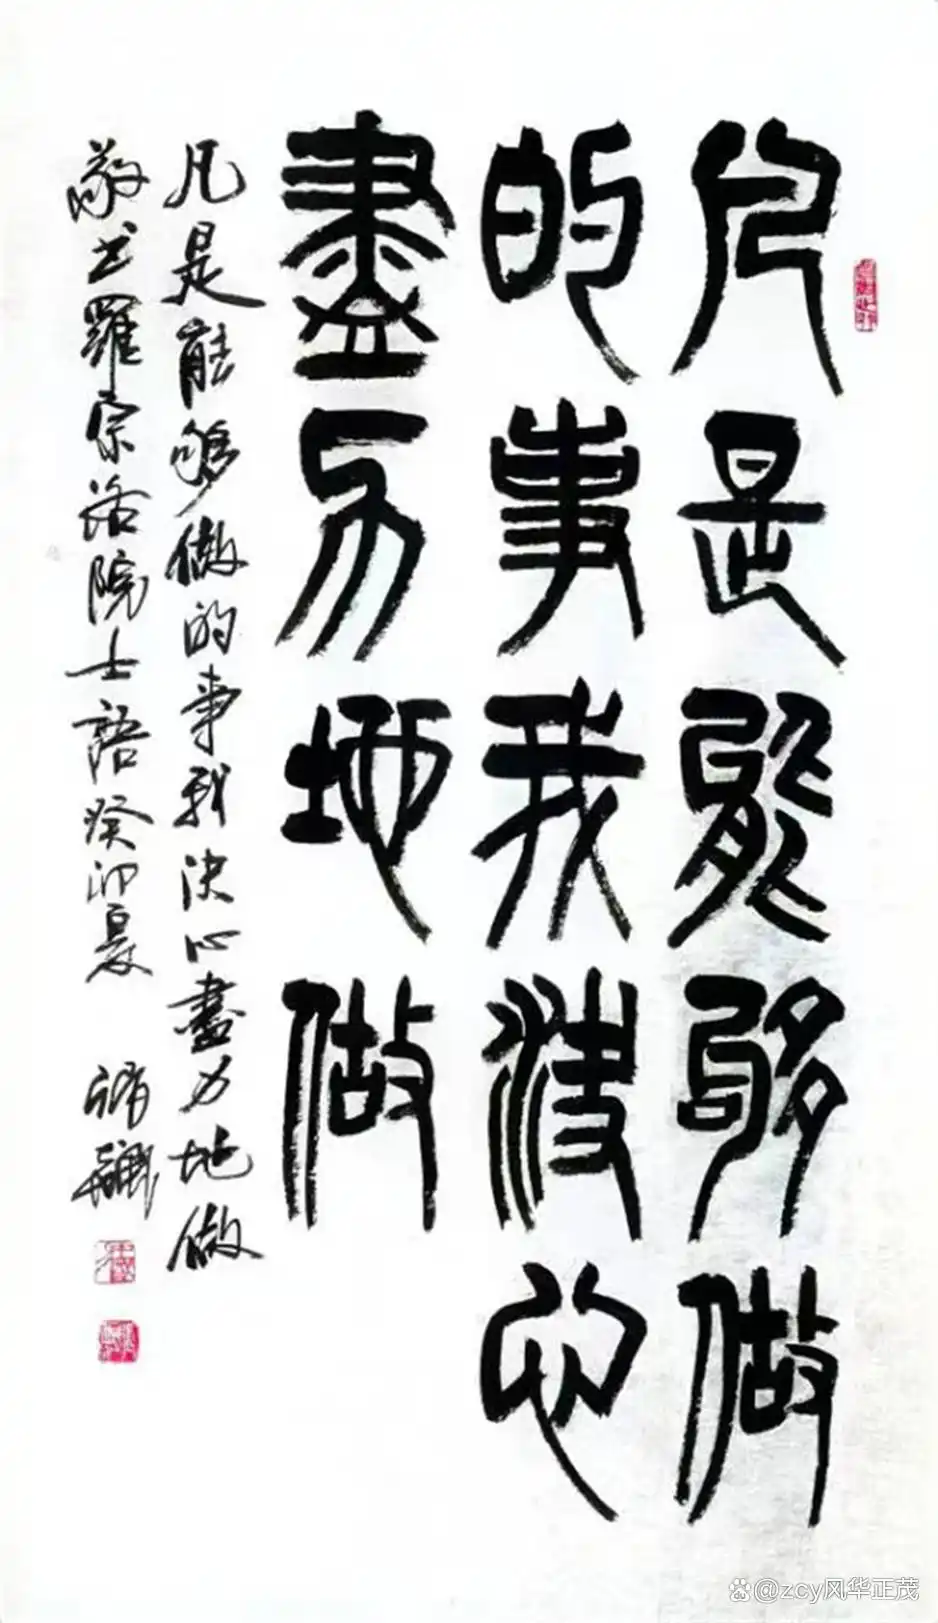 凡是能够做
的事我决心
盡力地做
凡是能够做的事我决心盡力地做
敬书羅宗洛院士語癸卯夏
@zcy风华正茂